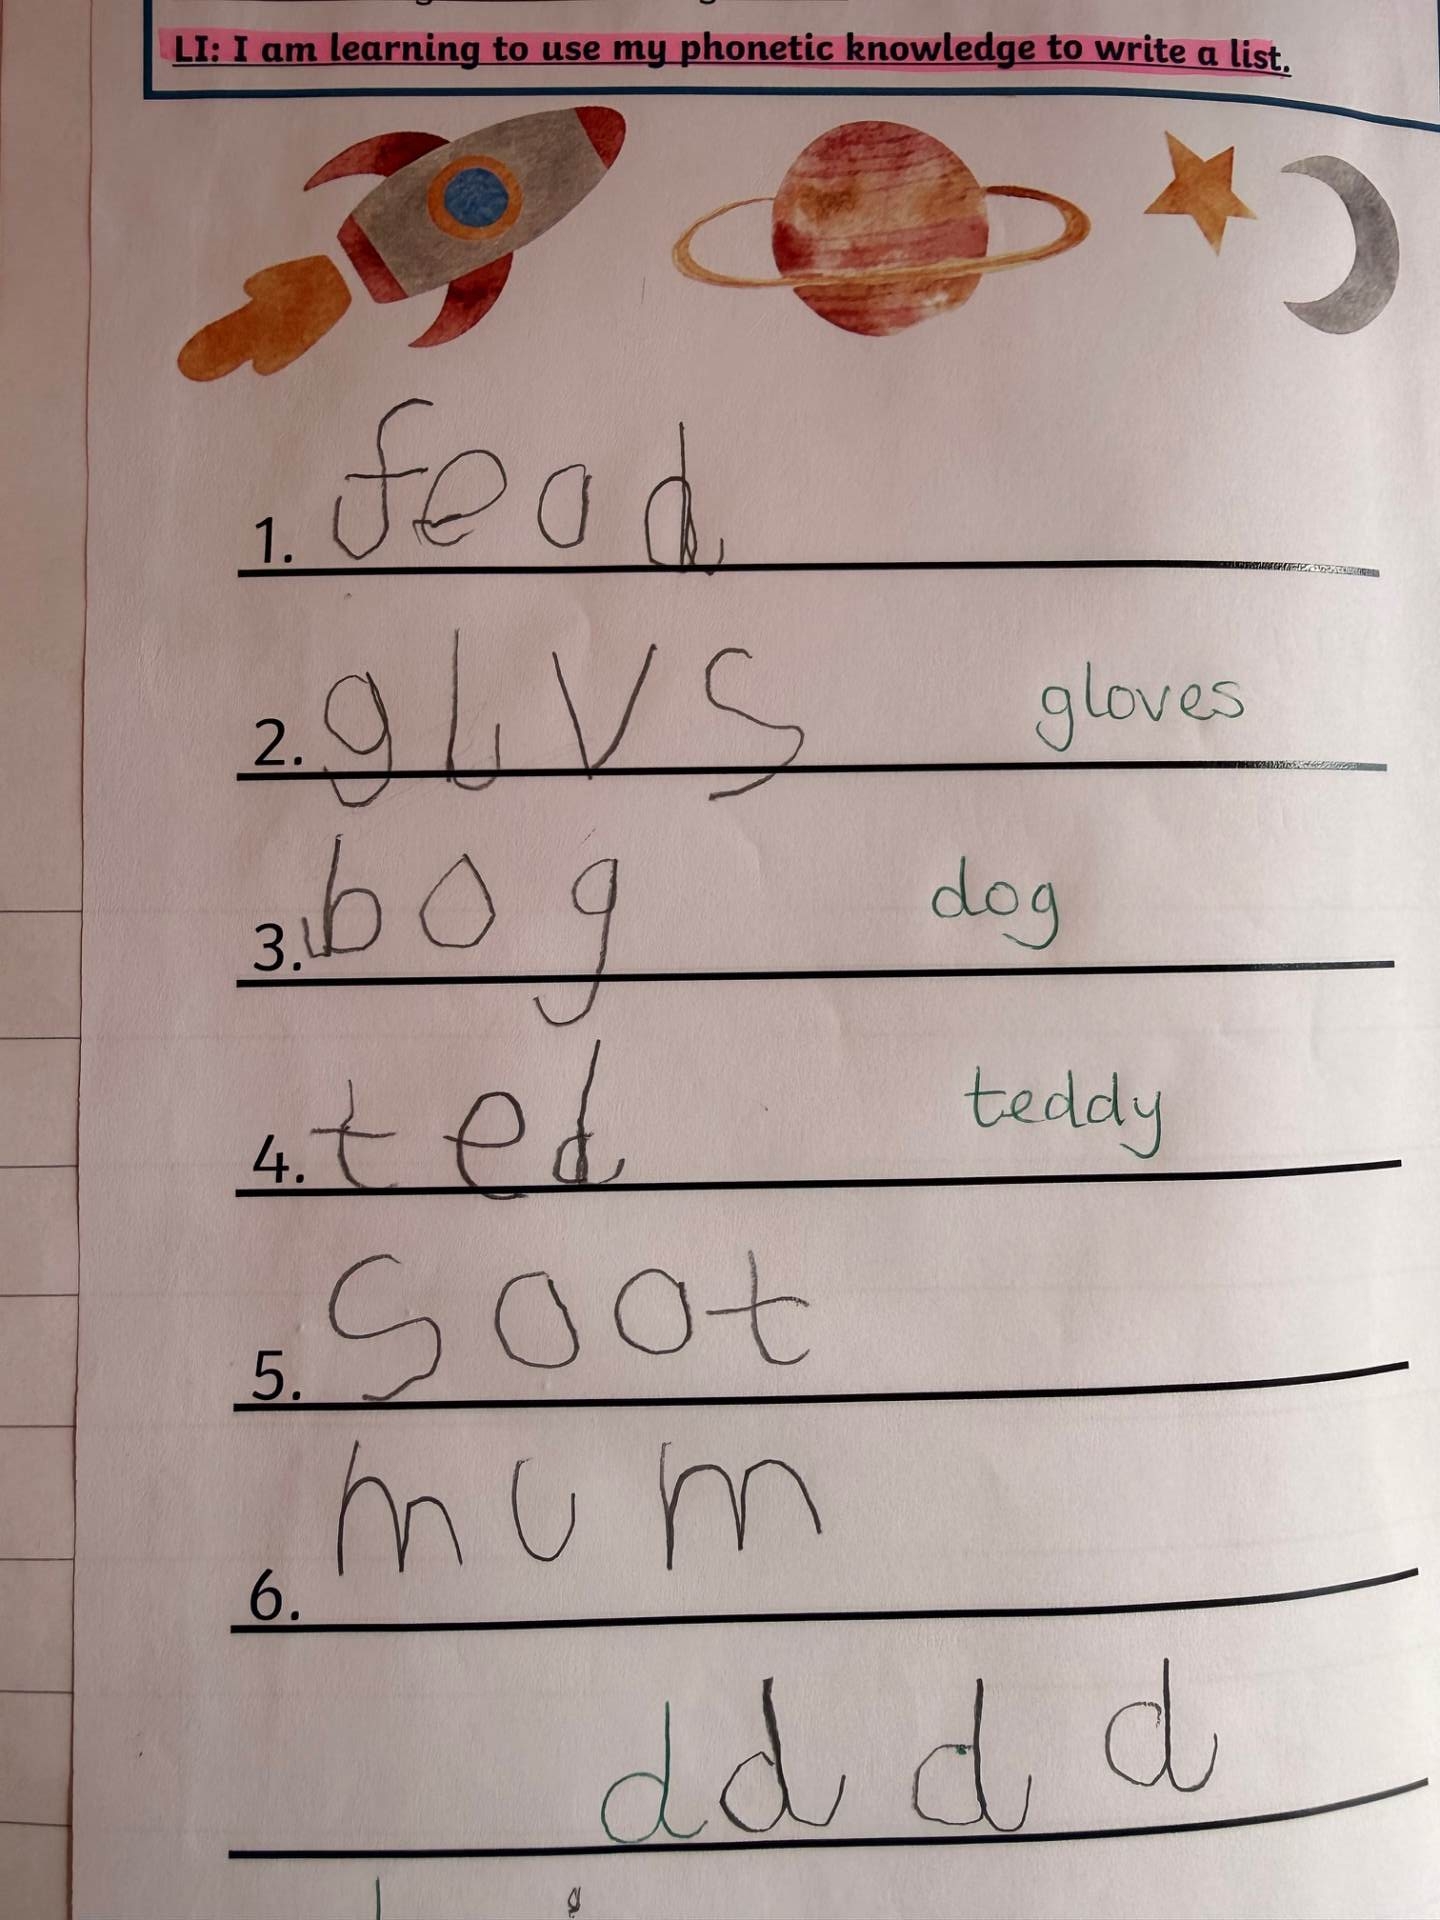 LI: I am learning to use my phonetic knowledge to write a list.
1. feod
2. glvs gloves
3. bog dog
4. ted teddy
5. soot
6. mum
d d d d